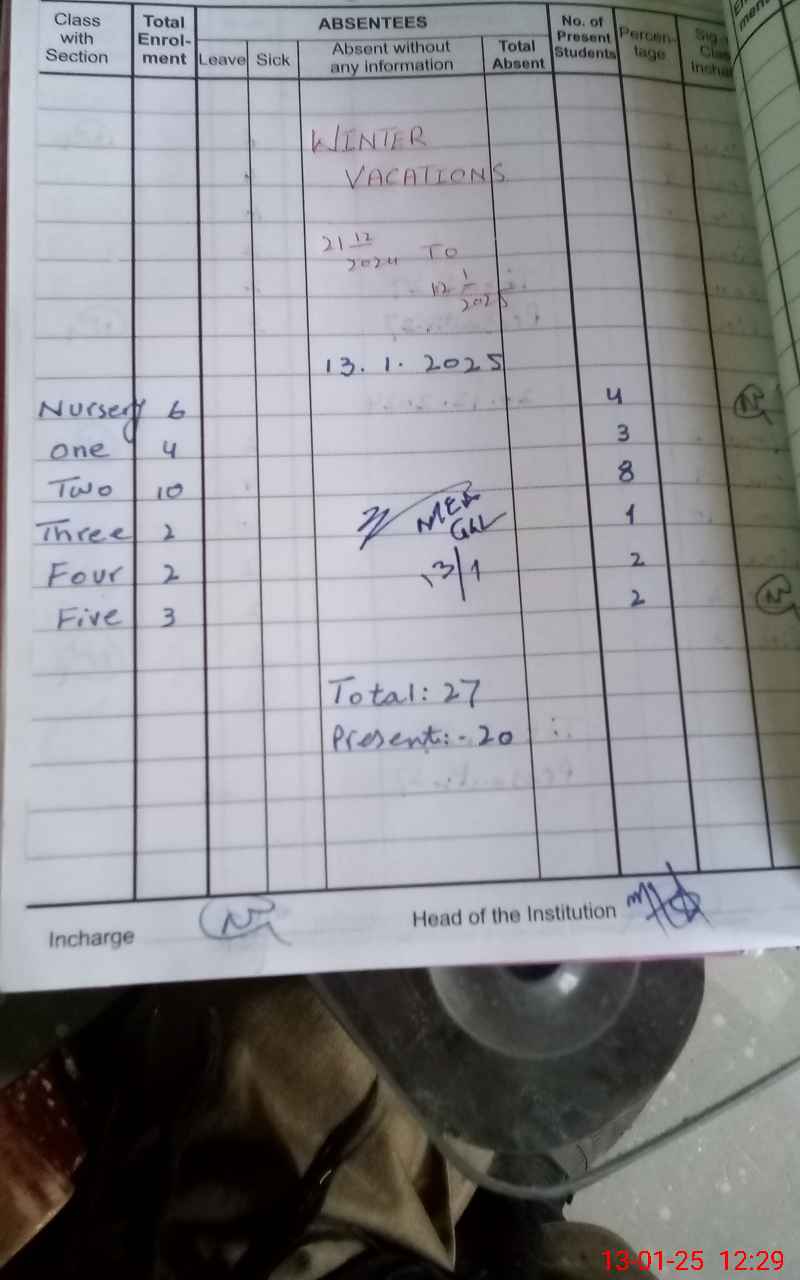 Class with Section
Total Enrol- ment
ABSENTEES
Leave
Sick
Absent without any information
Total Absent
No. of Present Students
Percen- tage
WINTER
VACATIONS
21 12/2024 TO
12 1/2025
13. 1. 2025
Nursery 6 4
one 4 3
Two 10 8
Three 2 1
Four 2 2
Five 3 2
13/1
Total: 27
Present:- 20
Incharge
Head of the Institution
13-01-25 12:29